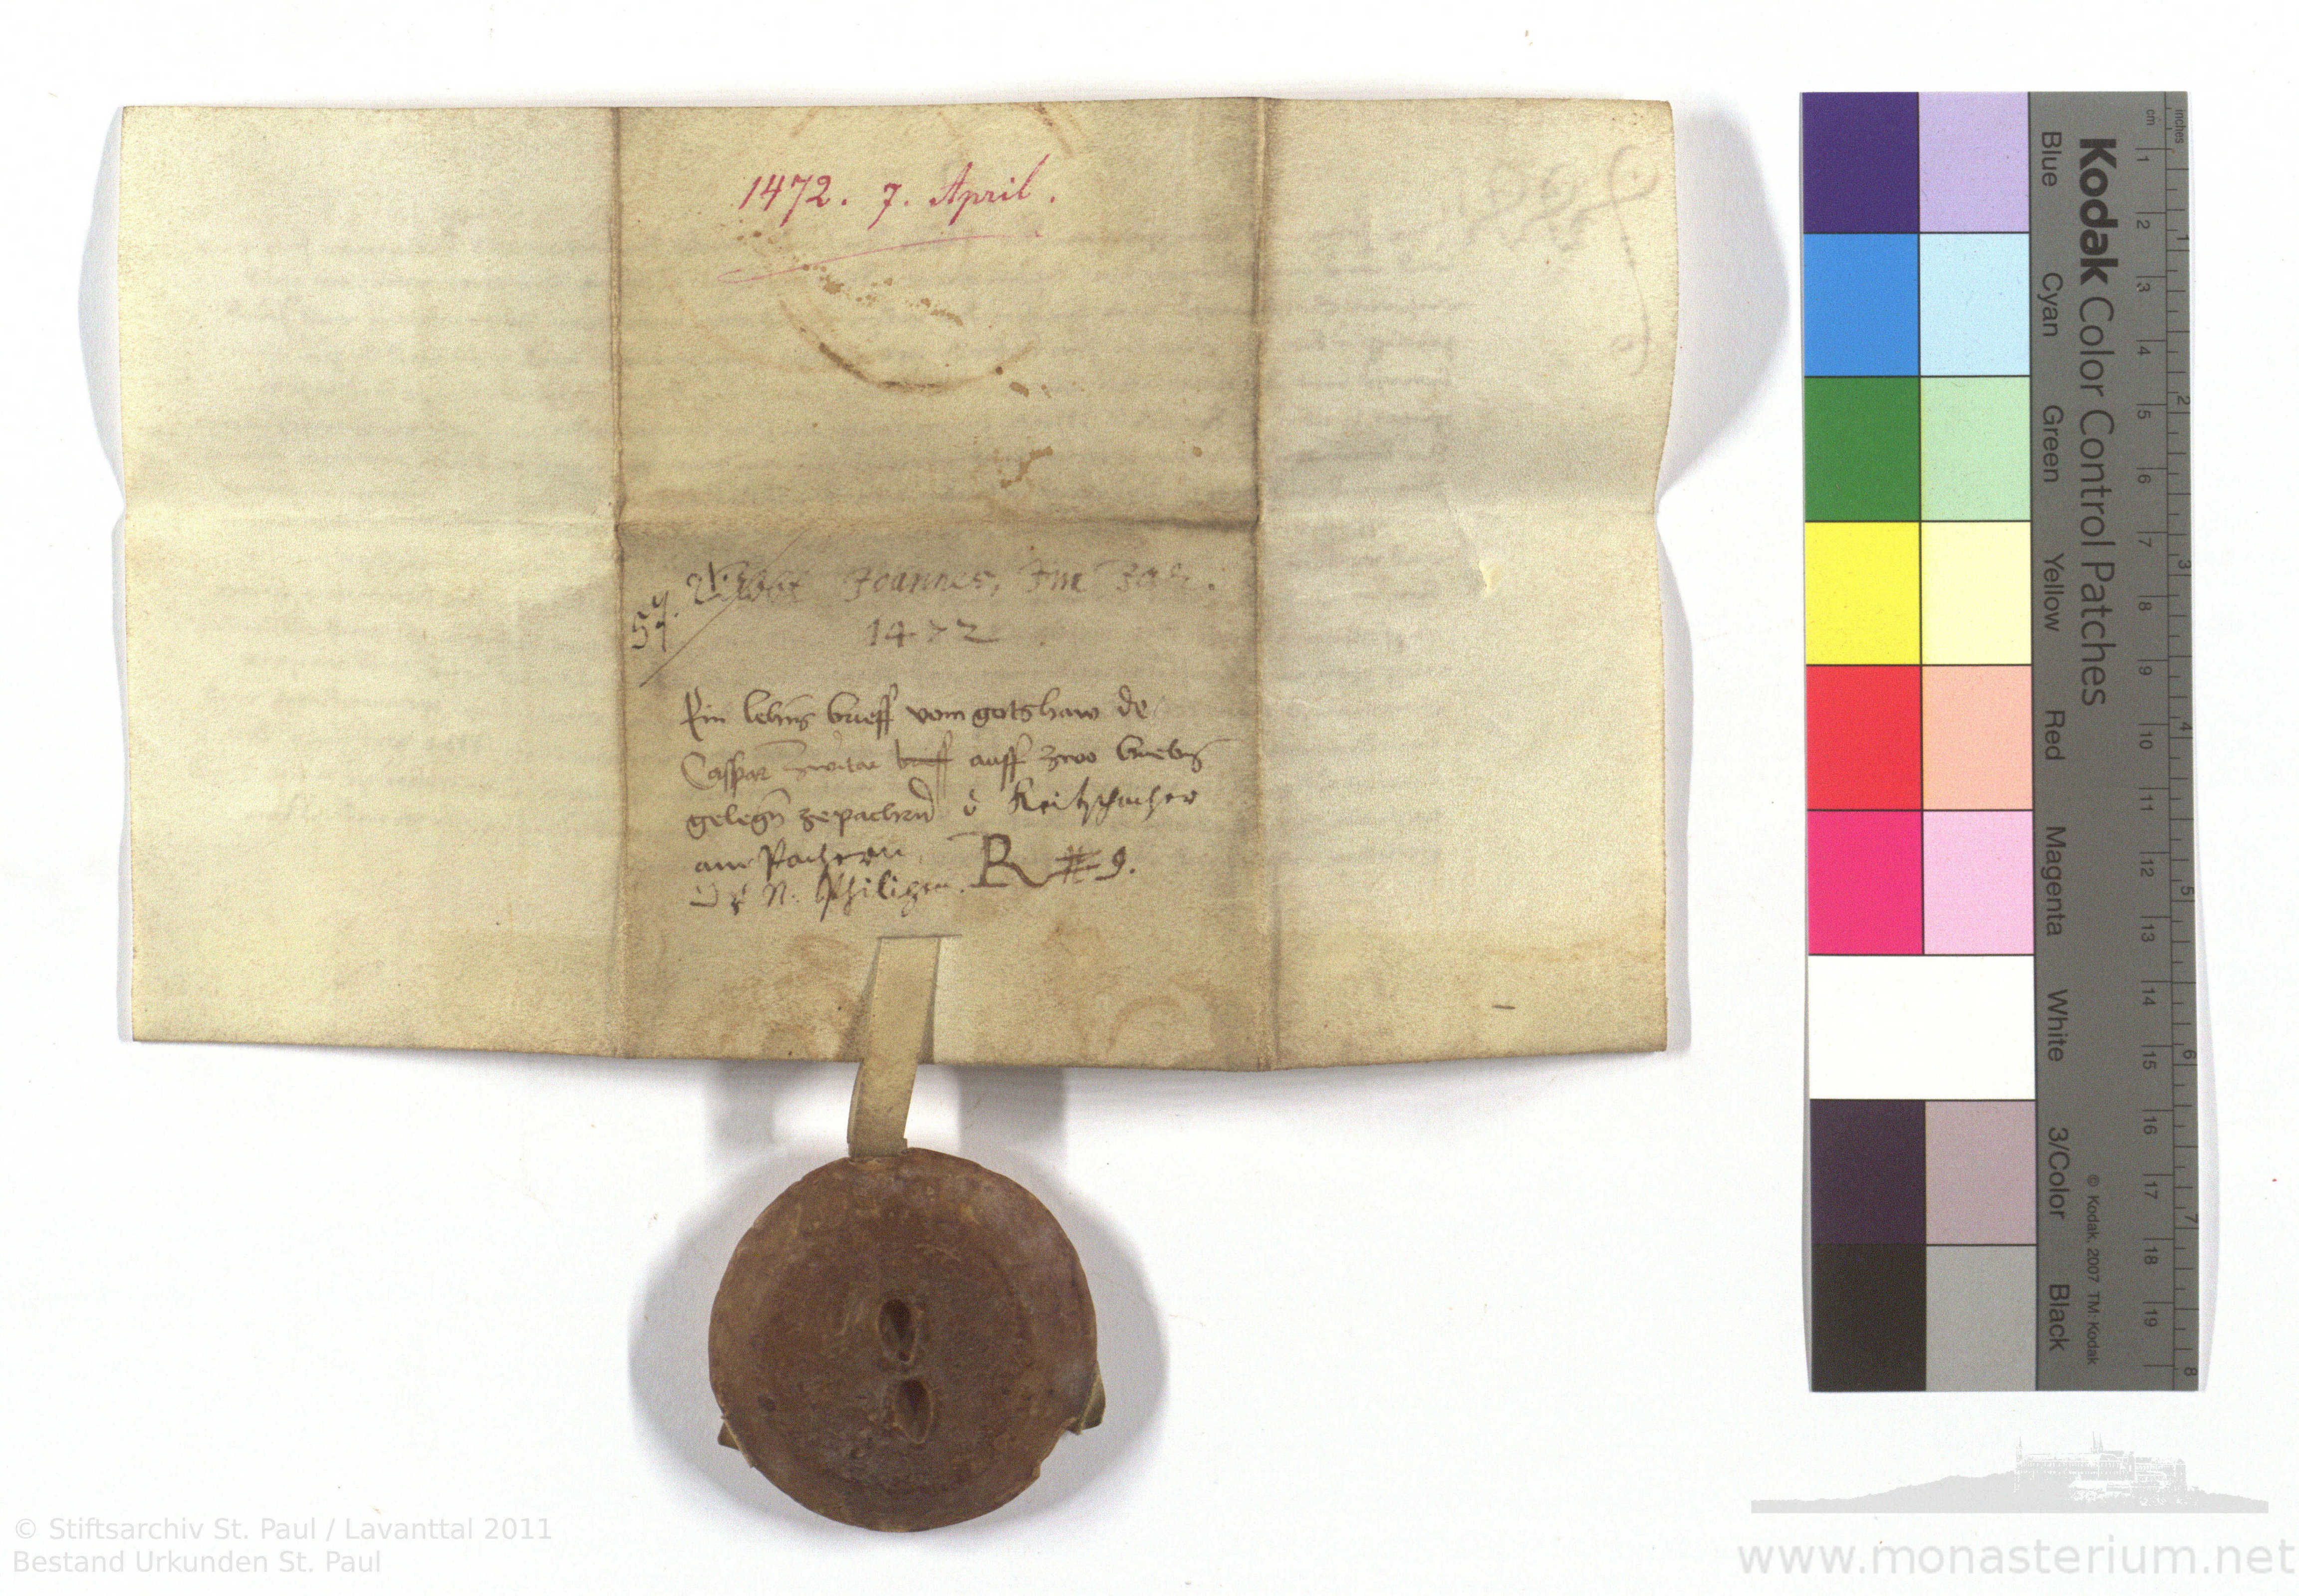 1472. 7. April.
Abbt Joannes, Im Jar.
1472
57.
Ein lehens brieff vom gotshaws de
Caspar brieff auff zwo hueben
gelegn zepachern Keitschacher
am Pachern. R # 9.
N.
Kodak Color Control Patches
Blue Cyan Green Yellow Red Magenta White 3/Color Black
© Kodak, 2007 TM: Kodak
inches 1 2 3 4 5 6 7 8
cm 1 2 3 4 5 6 7 8 9 10 11 12 13 14 15 16 17 18 19
© Stiftsarchiv St. Paul / Lavanttal 2011
Bestand Urkunden St. Paul
www.monasterium.net